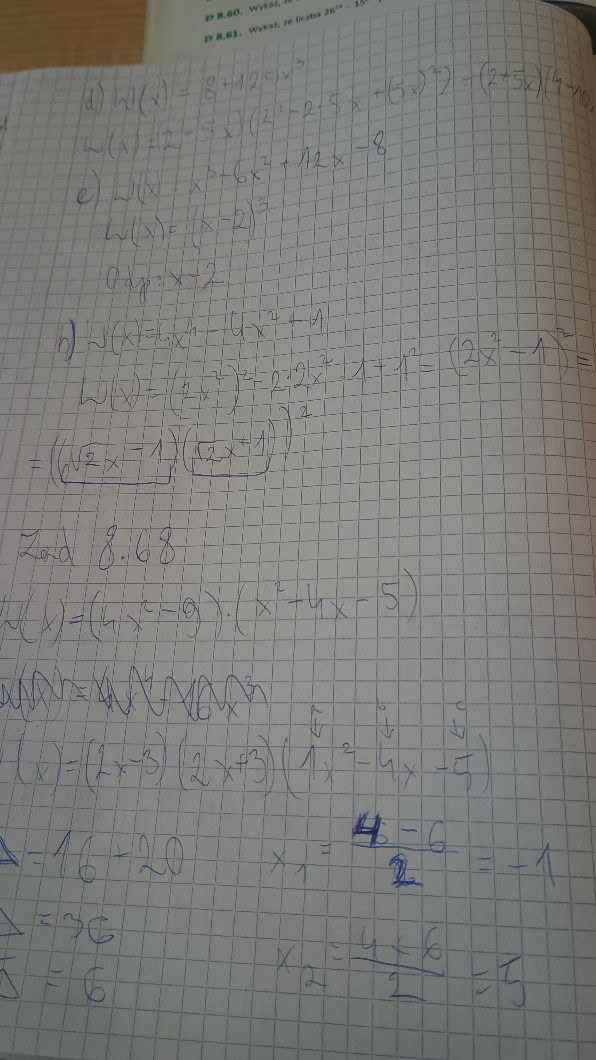 8.60. Wykaż, że
8.61. Wykaż, że liczba 26²⁴ - 15
d) W(x) = 8 + 125x³
W(x) = (2 - 5x)(2² - 2·5x + (5x)²) = (2+5x)(4 - 10x
e) W(x) = x³ - 6x² + 12x - 8
W(x) = (x-2)³
Odp: x-2
h) W(x) = 4x⁴ - 4x² + 1
W(x) = (2x²)² - 2·2x²·1 + 1² = (2x² - 1)² =
= ((√2x - 1)(√2x + 1))²
Zad 8.68
W(x) = (4x² - 9)·(x² - 4x - 5)
a b c
(x) = (2x-3)(2x+3)(1x² - 4x - 5)
Δ = 16 + 20 x₁ = 4 - 6 / 2 = -1
Δ = 36
√Δ = 6 x₂ = 4 + 6 / 2 = 5